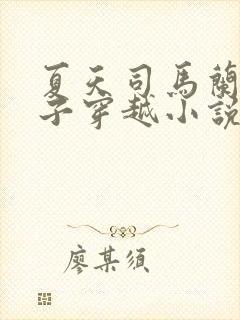 夏天司馬蘭
子穿越小說
廖某須